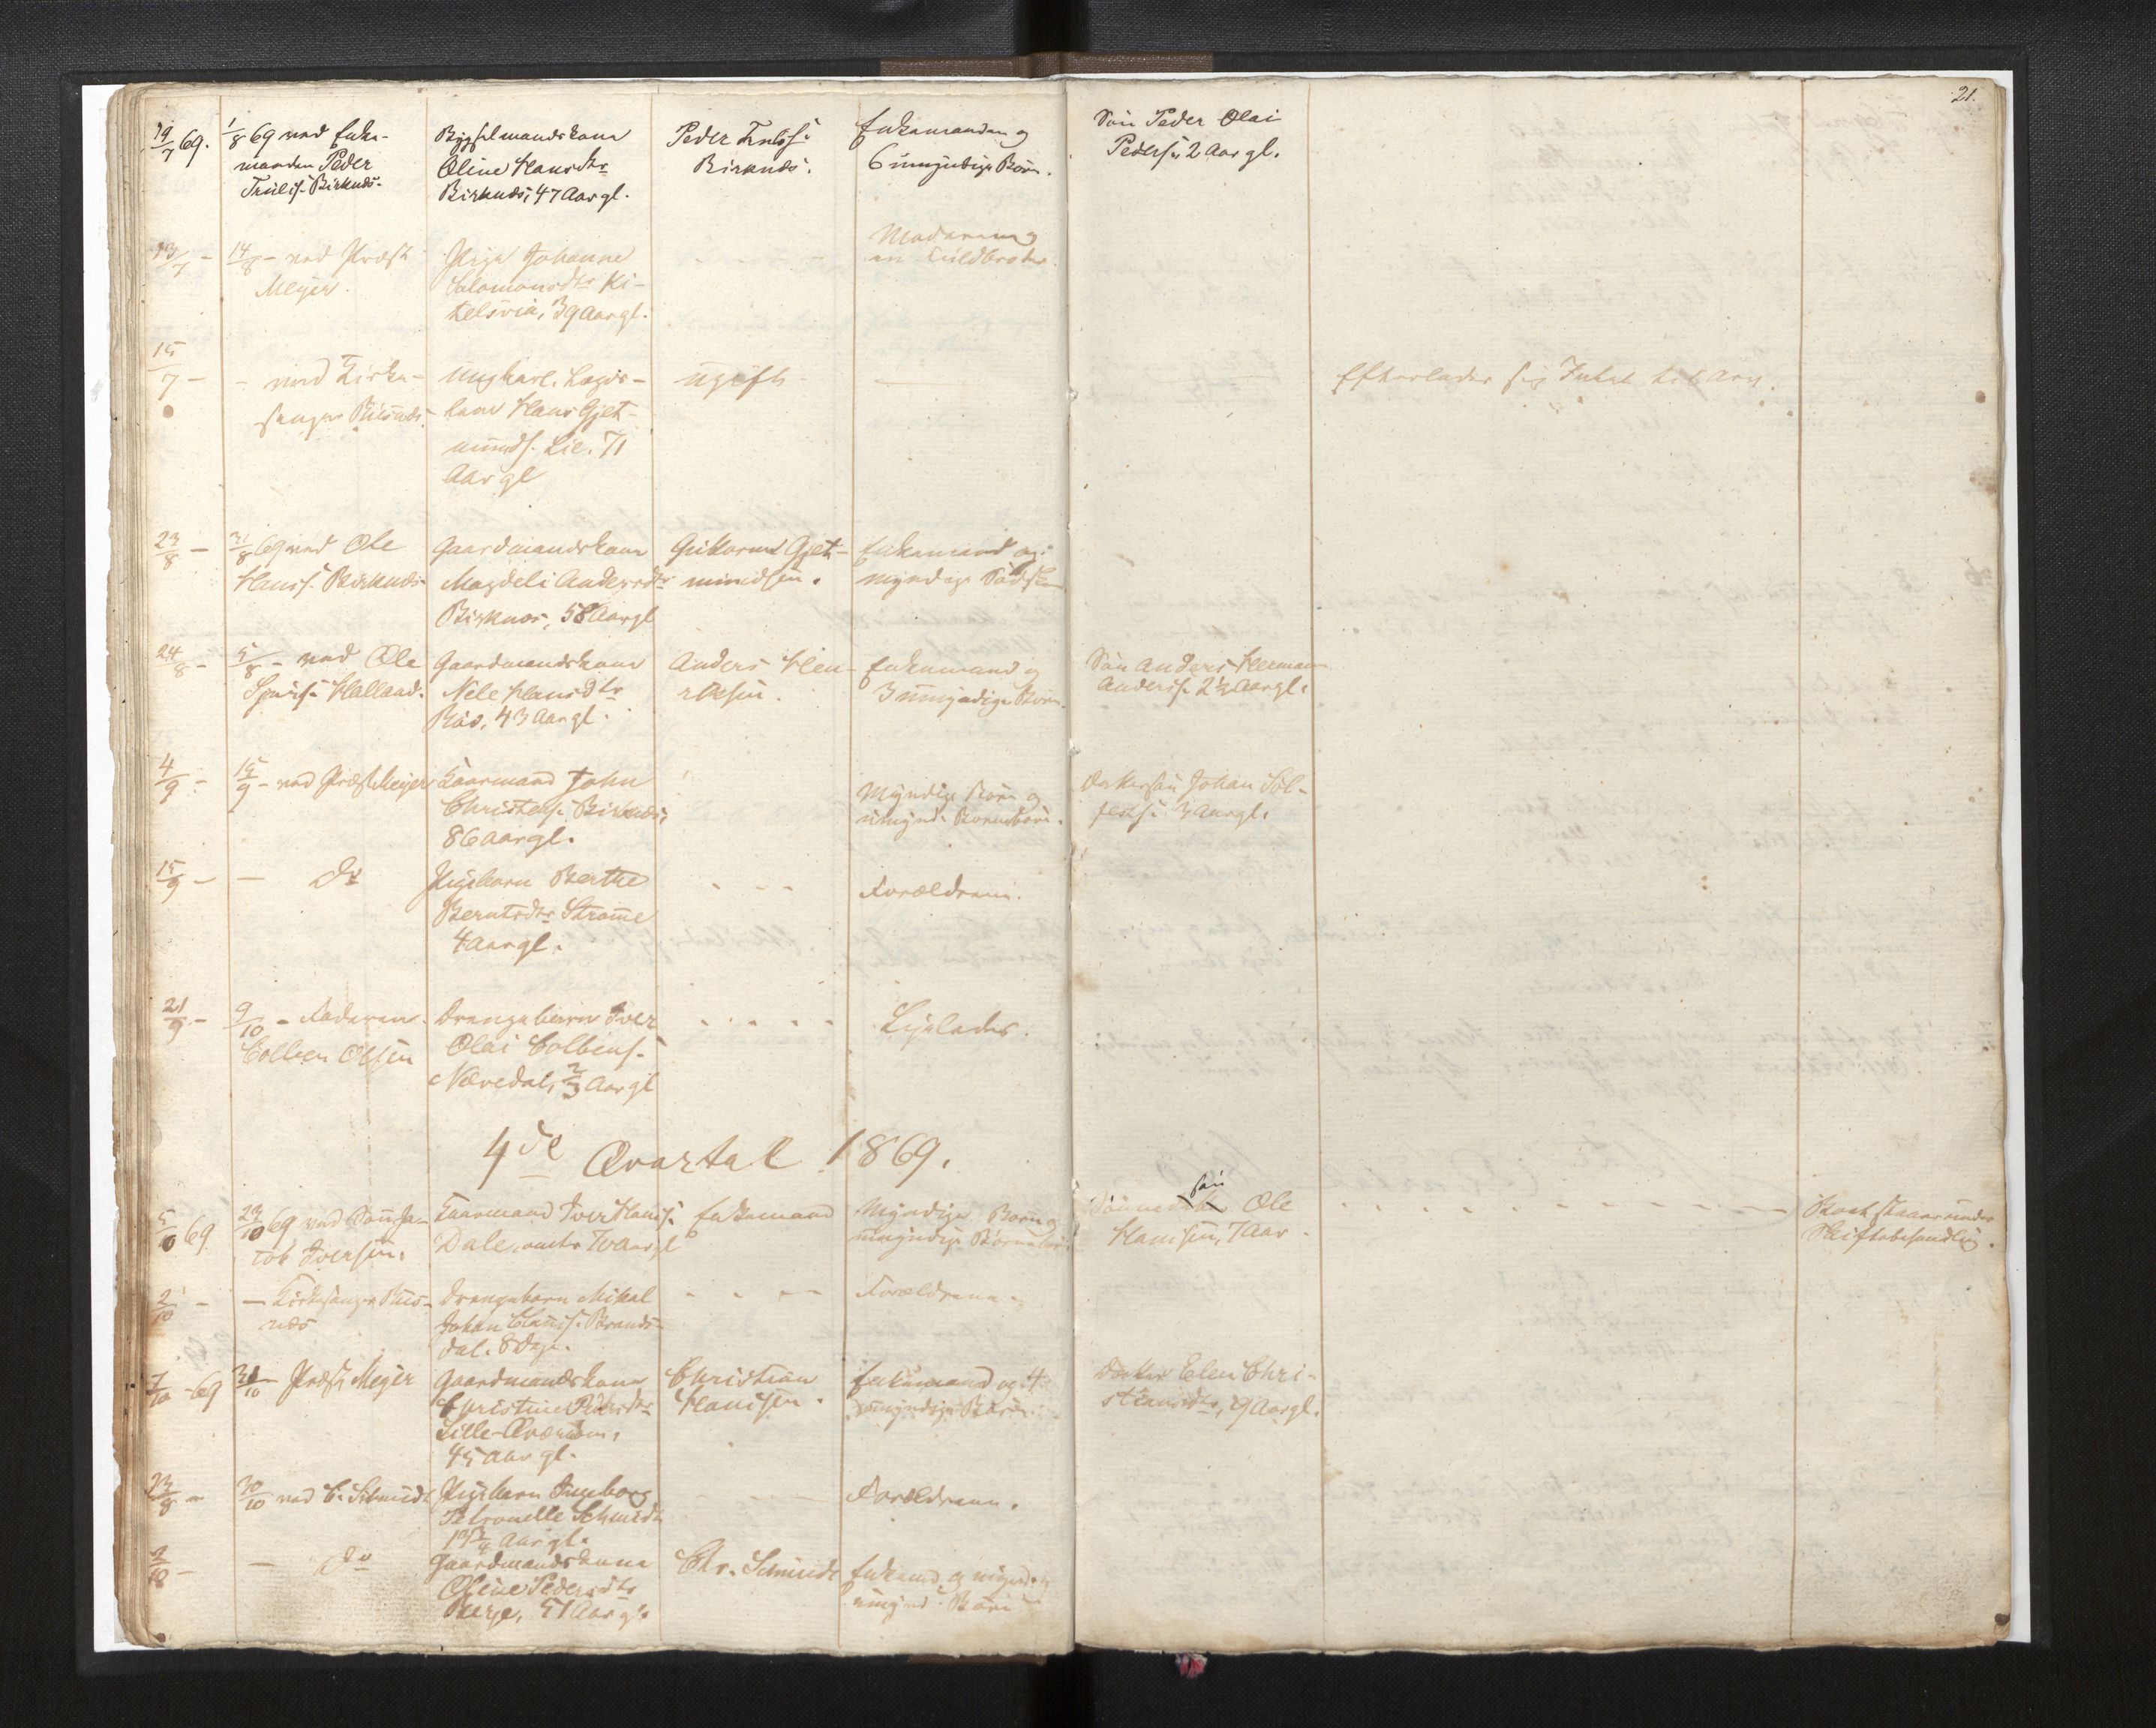 21.
19/7 69. 1/8 69 ved Enke-
manden Peder
Trulss. Birknæs.
Bygselmandskone
Oline Hansdtr
Birknæs, 47 Aar gl.
Peder Trulss.
Birknæs.
Enkemanden og
6 umyndige Børn.
Søn Peder Olai
Peders. 2 Aar gl.
13/7 - 14/8 - ved Præst
Meyer.
Pige Johanne
Salomonsdtr Ki-
telsvia, 39 Aar gl.
Moderen og
en Fuldbroder.
15/7 - - ved Kirke-
sanger Riisnæs.
Ungkarl, Lægds-
lem Hans Gjet-
munds. Lie. 71
Aar gl
ugift
Efterlader sig Intet til Arv.
23/8 - 31/8 69 ved Ole
Hanss. Birknæs
Gaardmandskone
Magdeli Andersdtr
Birknæs, 58 Aar gl
Guttorm Gjet-
mundsen.
Enkemand og
myndige Sødsken
24/8 - 5/8 - ved Ole
Halland.
Gaardmandskone
Nille Hansdtr
Riis, 43 Aar gl.
Anders Hen-
riksen.
Enkemand og
3 umyndige Børn.
Søn Anders Herman
Anderss. 2½ Aar gl.
4/9 - 15/9 - ved Præst Meyer
Kaarmand John
Christens. Birknæs,
86 Aar gl.
Myndige Børn og
umynd. Børnebørn.
Dattersøn Johan Sol-
fests. 3 Aar gl.
15/9 - - Do
Pigebarn Berthe
Berntsdtr Strømme
4 Aar gl.
Forældrene.
21/9 - 9/10 - Faderen
Colben Olsen
Drengebarn Iver
Olai Colbens.
Nævedal, 2/3 Aar gl
Ligeledes.
4de Qvartal 1869.
5/10 69. 23/10 69 ved Søn Ja-
cob Iversen.
Kaarmand Iver Hanss.
Dale, 70 Aar gl
Enkemand
Myndige Børn og
umyndige Børnebørn
søn
Ole
Hansen, 7 Aar.
Skiftebehandling.
2/10 - - Kirkesanger Riis-
næs
Drengebarn Mikal
Johan Clauss. Brands-
dal. 8 Dage.
Forældrene.
7/10 - 69 31/10 - Præst Meyer
Gaardmandskone
Christine
Lille-Qværnæs,
45 Aar gl.
Christian
Hansen.
Enkemand og 4
umyndige Børn.
Datter Elen Chri-
stiansdtr, 29 Aar gl.
23/8 - 30/10 ved C. Schmidt
Pigebarn Ingeborg
Petronelle Schmidt
1¾ Aar gl.
Forældrene.
2/10 - - Do
Gaardmandskone
Oline Pedersdtr
Berge, 51 Aar gl.
Chr. Schmidt
Enkemd. og myndige
umynd. Børn